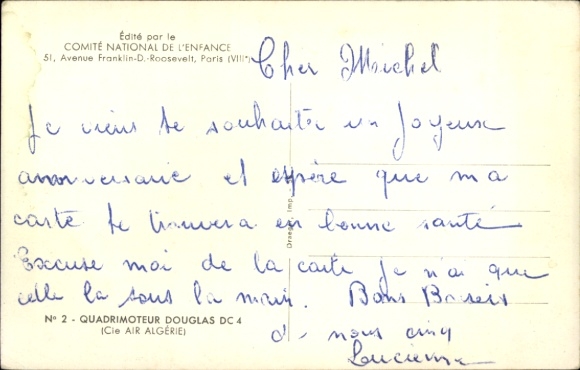 Édité par le
COMITÉ NATIONAL DE L'ENFANCE
51, Avenue Franklin-D.-Roosevelt, Paris (VIIIe)
Cher Michel
Je viens te souhaiter un Joyeux
anniversaire et espère que ma
carte te trouvera en bonne santé
Excuse moi de la carte je n'ai que
celle la sous la main. Bons Baisers
de nous cinq
Lucienne
Draeger Imp.
No 2 - QUADRIMOTEUR DOUGLAS DC 4
(Cie AIR ALGÉRIE)